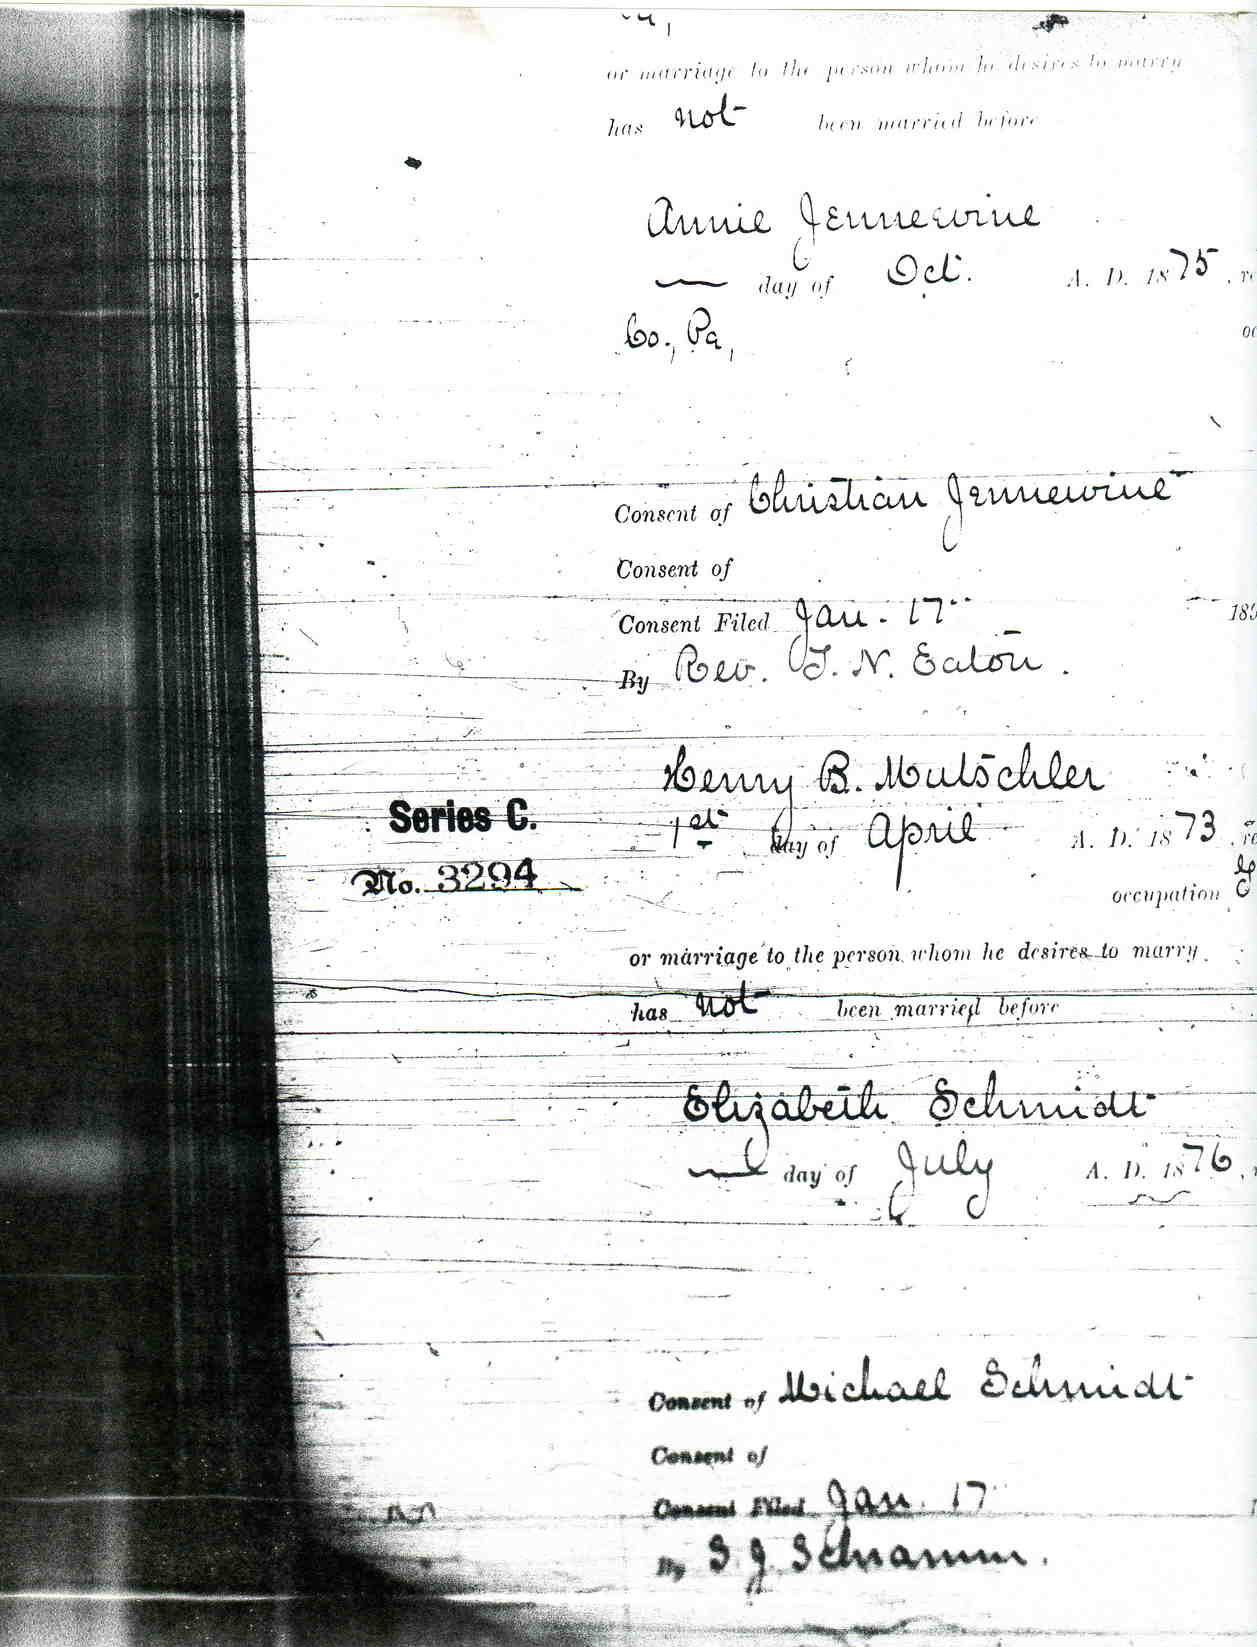 or marriage to the person whom he desires to marry
has not been married before
Annie Jennewine
day of Oct. A. D. 1875, re
Co., Pa,
oc
Consent of Christian Jennewine
Consent of
Consent Filed Jan. 17 189
By Rev. T. N. Eaton.
Henry B. Mutschler
Series C. 1st day of April A. D. 1873, re
No. 3294
occupation
or marriage to the person whom he desires to marry
has not been married before
Elizabeth Schmidt
day of July A. D. 1876,
Consent of Michael Schmidt
Consent of
Consent Filed Jan. 17 1
By S. J. Schramm.